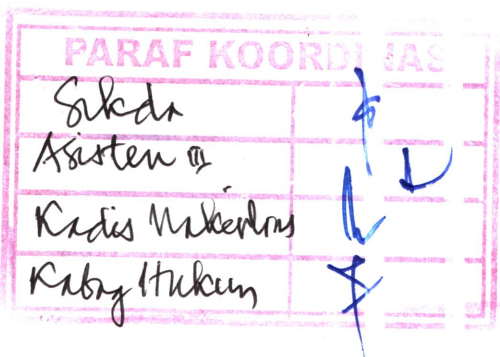 PARAF KOORDINASI
Sekda
Asisten III
Kadis Nakertrans
Kabag Hukum